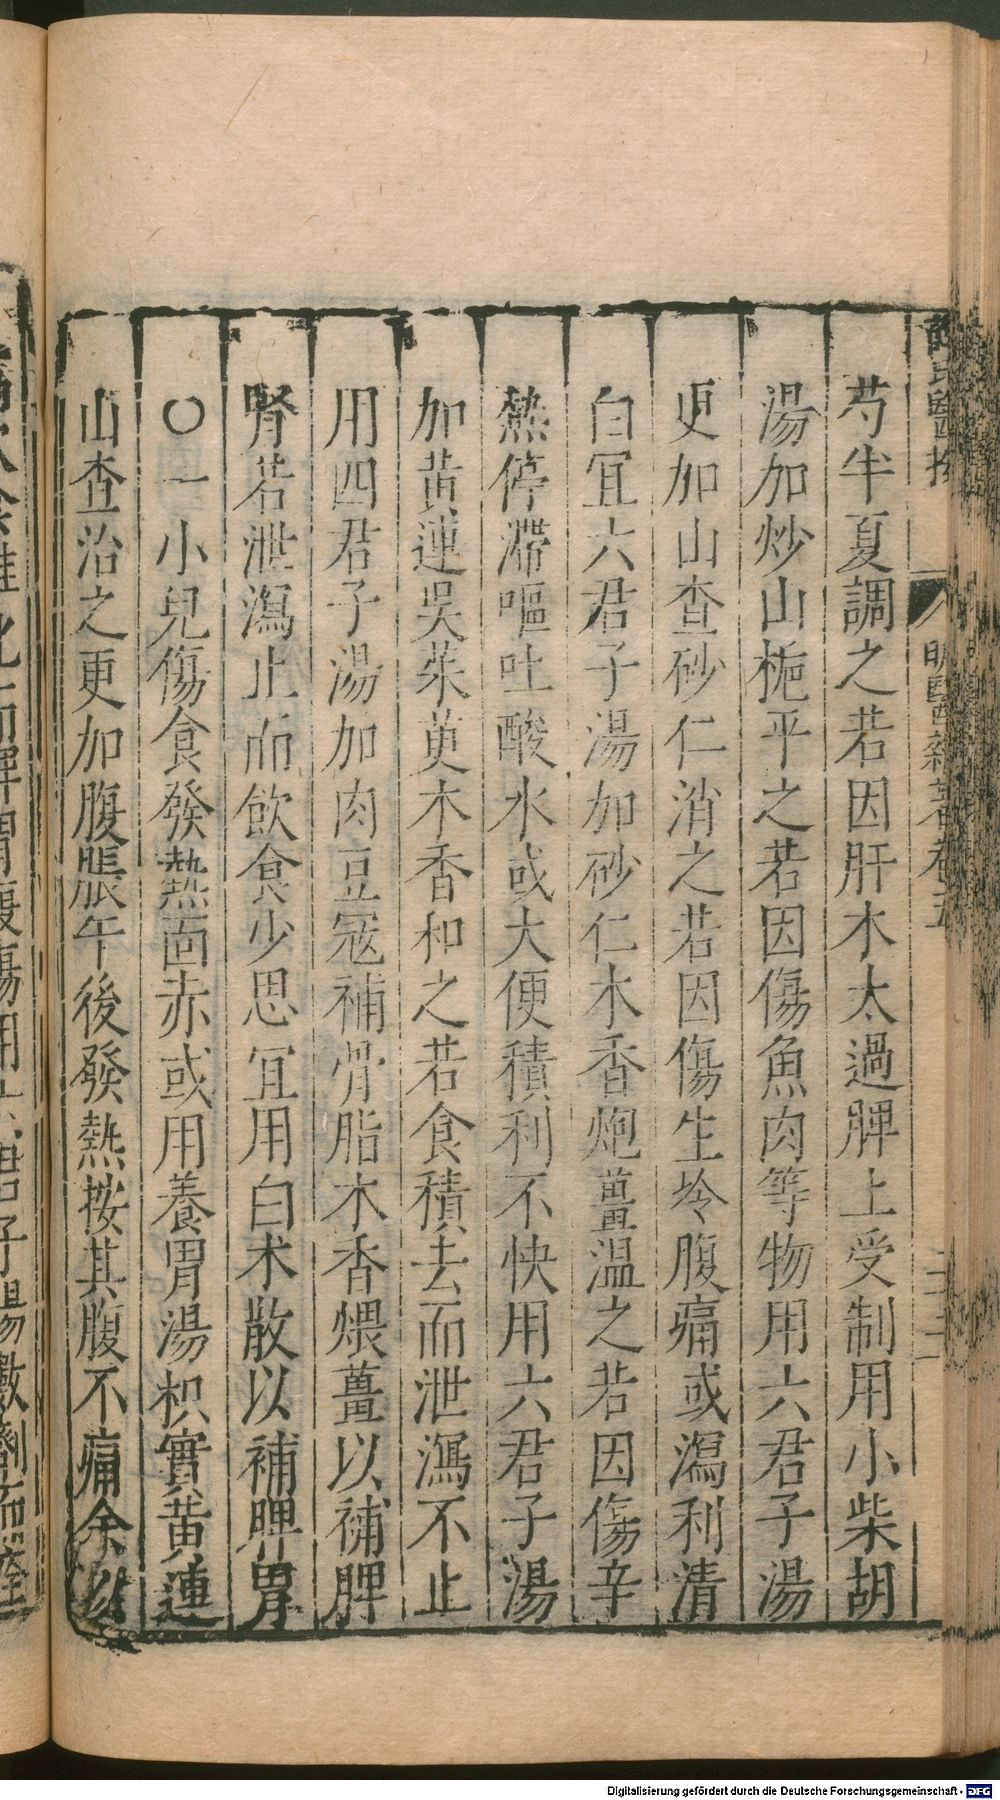 芍半夏調之若因肝木太過脾土受制用小柴胡
湯加炒山梔平之若因傷魚肉等物用六君子湯
更加山查砂仁消之若因傷生冷腹痛或瀉利清
白宜六君子湯加砂仁木香炮薑溫之若因傷辛
熱停滯嘔吐酸水或大便積利不快用六君子湯
加黃連吳茱萸木香和之若食積去而泄瀉不止
用四君子湯加肉豆寇補骨脂木香煨薑以補脾
腎若泄瀉止而飲食少思宜用白术散以補脾胃
〇一小兒傷食發熱面赤或用養胃湯枳實黃連
山查治之更加腹脹午後發熱按其腹不痛余以
明醫雜著卷五
Digitalisierung gefördert durch die Deutsche Forschungsgemeinschaft - DFG